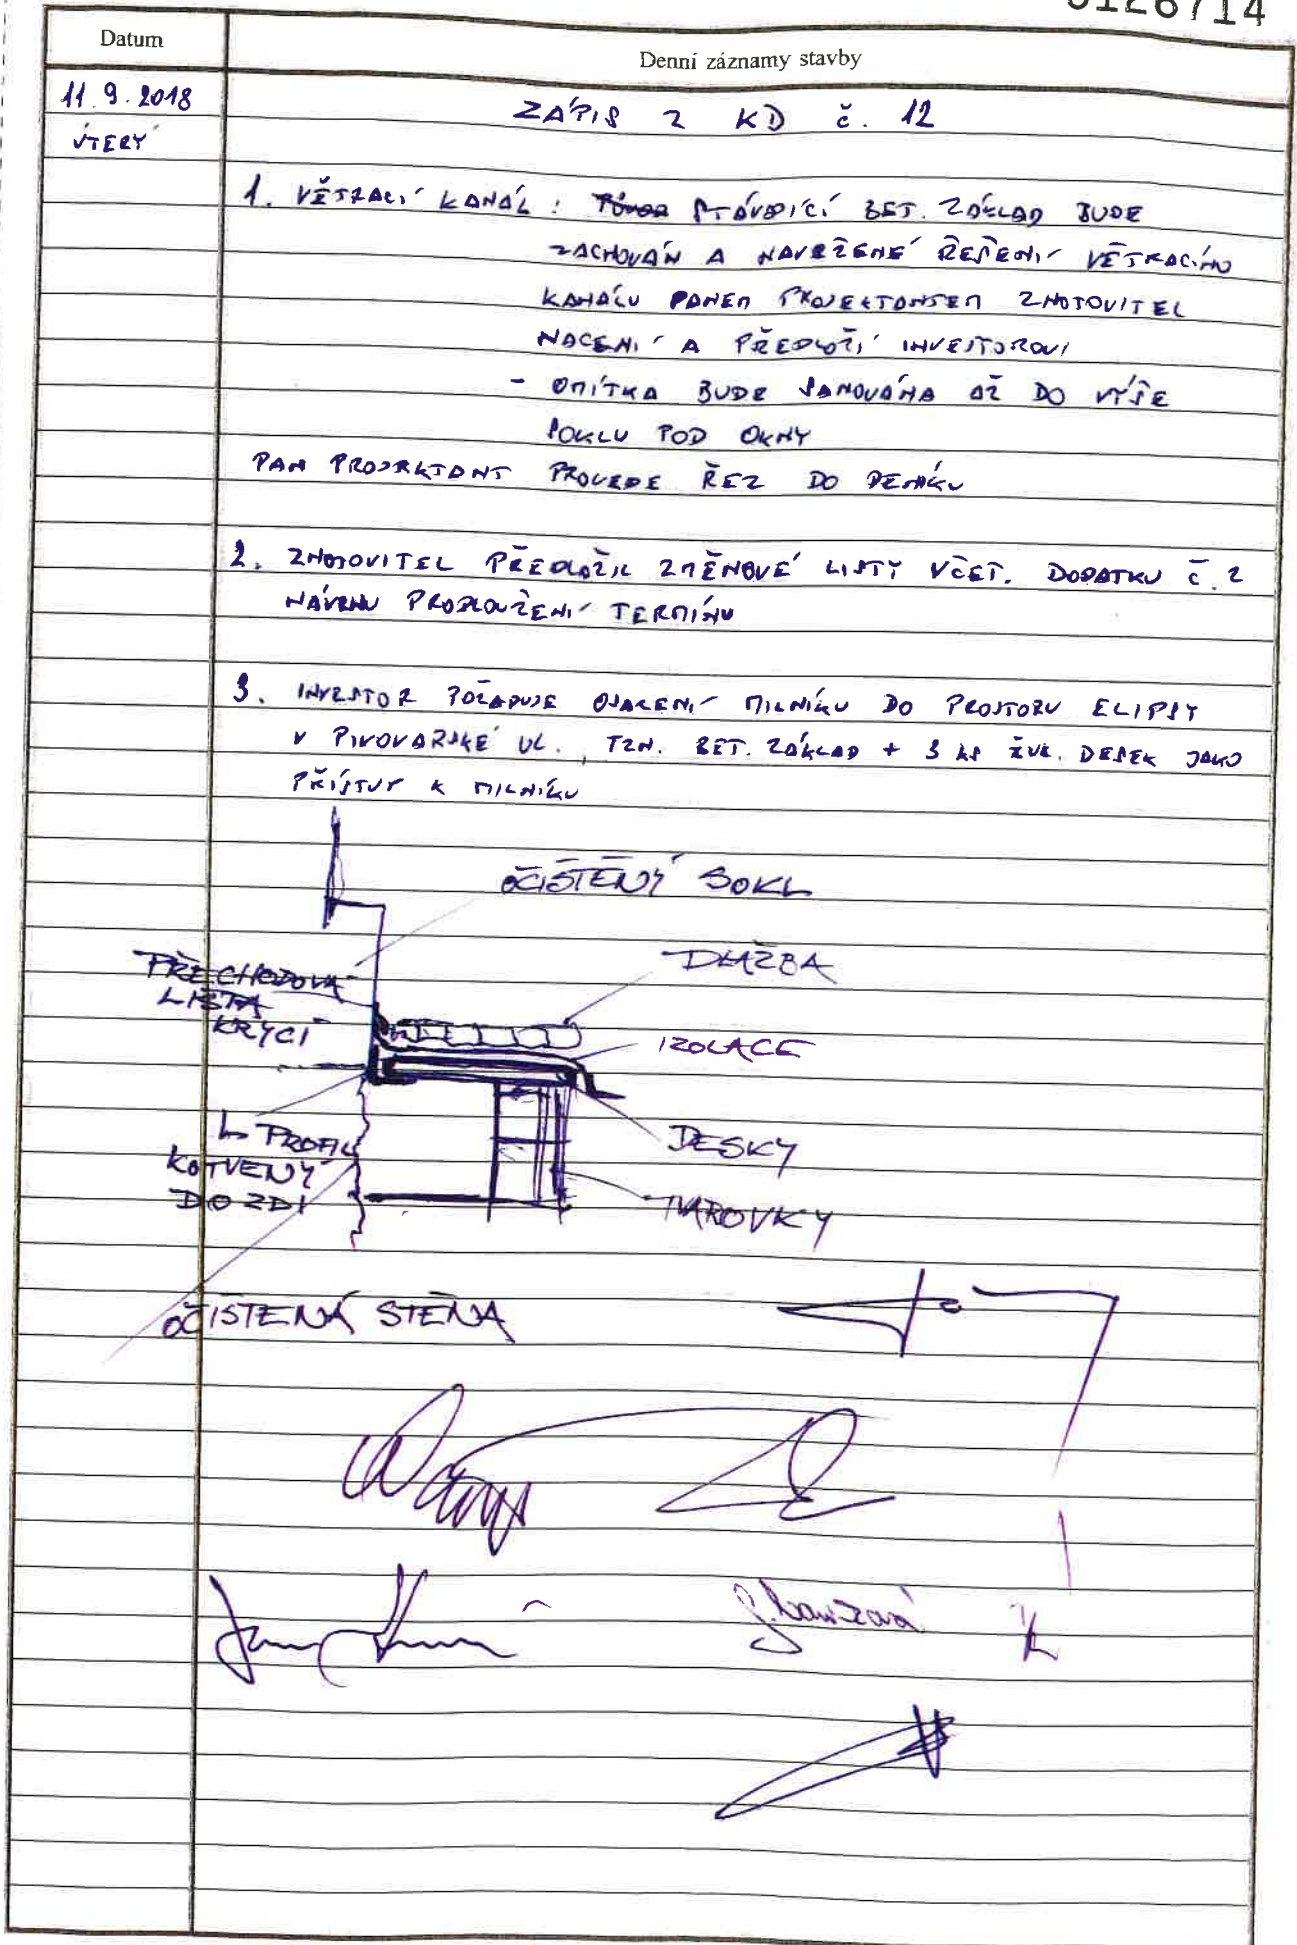 Datum
Denní záznamy stavby
11.9.2018
ÚTERÝ
ZÁPIS Z KD č. 12
1. VĚTRACÍ KANÁL : STÁVAJÍCÍ BET. ZÁKLAD BUDE
ZACHOVÁN A NAVRŽENÉ ŘEŠENÍ VĚTRACÍHO
KANÁLU PANEM PROJEKTANTEM ZHOTOVITEL
NACENÍ A PŘEDLOŽÍ INVESTOROVI
- OMÍTKA BUDE SANOVÁNA AŽ DO VÝŠE
SOKLU POD OKNY
PAN PROJEKTANT PROVEDE ŘEZ DO DENÍKU
2. ZHOTOVITEL PŘEDLOŽIL ZMĚNOVÉ LISTY VČET. DODATKU Č. 2
NÁVRHU PRODLOUŽENÍ TERMÍNU
3. INVESTOR POŽADUJE OSAZENÍ MILNÍKU DO PROSTORU ELIPSY
V PIVOVARSKÉ UL., TZN. BET. ZÁKLAD + 3 KS ŽUL. DESEK JAKO
PŘÍSTUP K MILNÍKU
OČIŠTĚNÝ SOKL
DLAŽBA
PŘECHODOVÁ
LIŠTA
KRYCÍ
IZOLACE
L PROFIL
KOTVENÝ
DO ZDI
DESKY
TVAROVKY
OČIŠTENÁ STĚNA